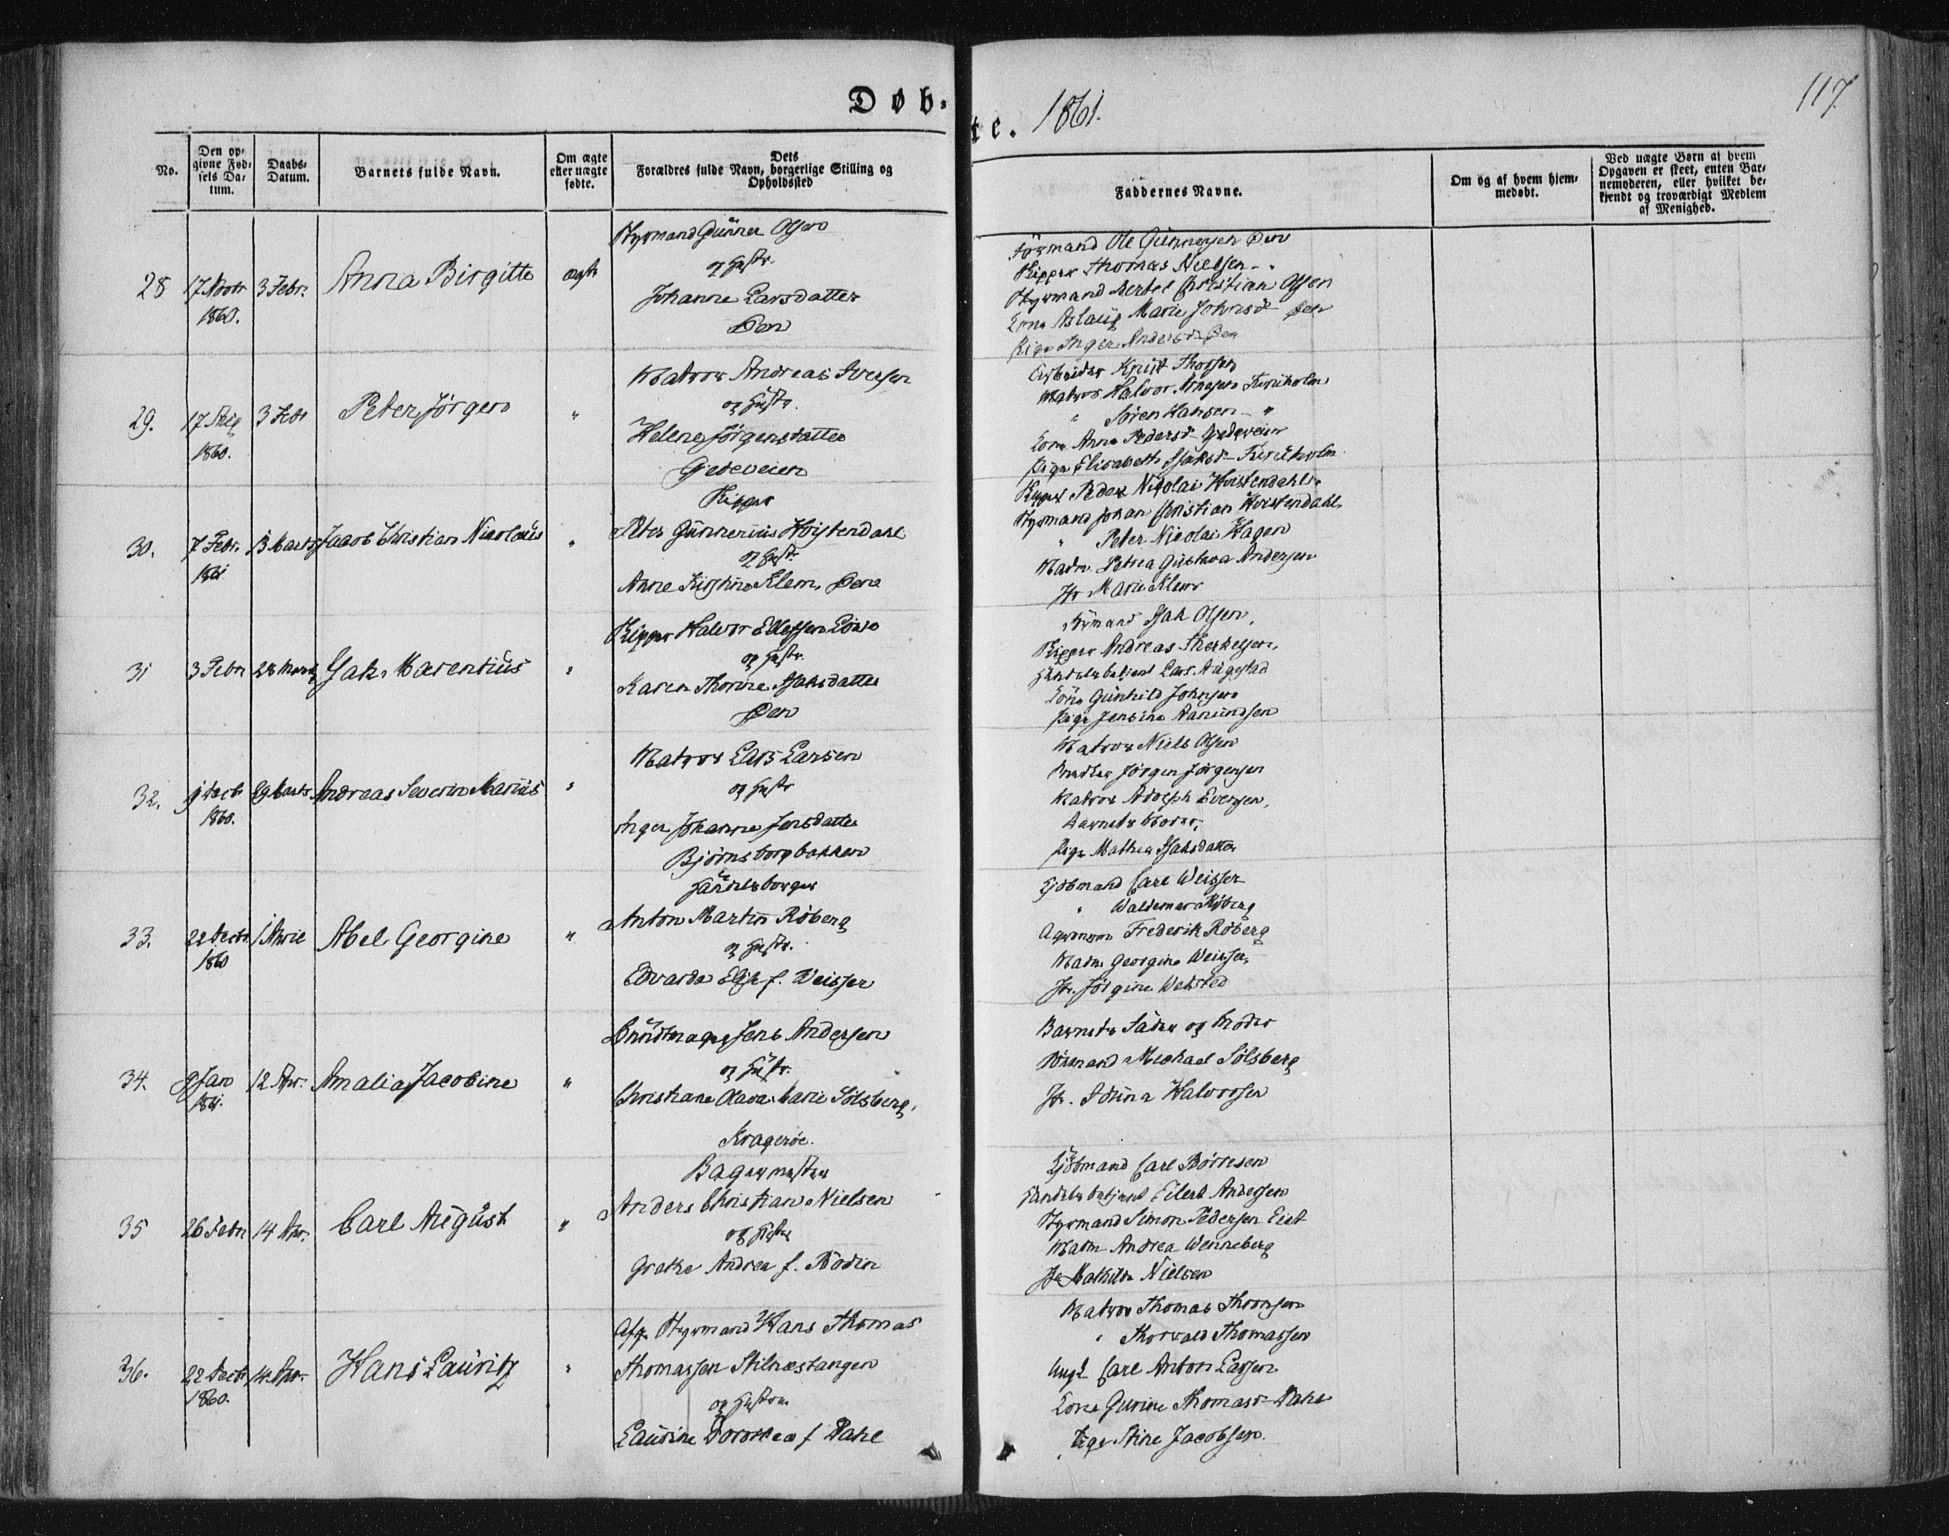 Døb-
te. 1861.
117.
No.
Den op-
givne Fød-
sels Da-
tum.
Daabs-
Datum.
Barnets fulde Navn.
Om ægte
eller uægte
fødte.
Dets
Forældres fulde Navn, borgerlige Stilling og
Opholdssted
Faddernes Navne.
Om og af hvem hjem-
medøbt.
Ved uægte Børn af hvem
Opgaven er skeet, enten Bar-
nemoderen, eller hvilket be-
kjendt og troværdigt Medlem
af Menighed.
28
17 Novbr
1860.
3 Febr.
Anna Birgitte
ægte
Styrmand Gunner Olsen
og Hustr.
Johanne Larsdatter
Øen
Ole Gunnersen Øen
Skipper Thomas Nielsen "
Styrmand Bertel Christian Olsen
Kone Aslaug Marie Johnsd. Øen
Pige Inger Andersd. Øen
29.
1860.
3 Febr
Peter Jørgen
"
Matros Andreas Iversen
og Hustr.
Helene Jørgensdatter
Gjedeveien
Arbeider Knut
Matros Halvor
" Søren Hansen "
Kone Anne Pedersd. Gjedeveien
Pige Elisabeth Isaksd.
30.
7 Febr.
1861
Jacob Christian Nicolaus
"
Skipper
Peter Gunnerius Hvistendahl
og Hustr.
Anne Kirstine Klem, Øen
Skipper Peder Nicolai Hvistendahl
Styrmand Johan Christian Hvistendahl
" Peter Nicolai Hagen
Madm. Petrea Gustava Andersen
Jfr Marie Klem
31
3 Febr
28 Marts
Isak Marentius
"
Skipper Halvor Ellefsen
og Hustr.
Karen Thorine Isaksdatter
Øen
Isak Olsen,
Skipper Andreas Therkelsen,
Handelsbetjent Lars Augestad
Kone Gunhild Johnsen
Pige Jensine Aanundsen
32.
1860.
29 Marts
Andreas Severin Marius
"
Matros Lars Larsen
og Hustr
Inger Johanne Jensdatter
Bjørnsborgbakken
Matros Niels Olsen
Snedker Jørgen Jørgensen
Matros Adolph Evensen,
Barnets Moder,
Pige Mathea Isaksdatter
33.
22 Decbr
1860
1 April
Abel Georgine
"
Handelsborger
Anton Martin Röberg
og Hustr.
Edvarda Elise f. Weisser
Kjöbmand Carl Weisser
" Waldemar Röberg
Frederik Röberg
Madm. Georgine Weisser,
Jfr. Jørgine Websted
34.
9 Jan
1861.
12 Apr.
Amalia Jacobine
"
Buntmager Jens Andersen
og Hustr.
Christiane Olava Marie Sölsberg,
Kragerøe.
Barnets Fader og Moder
Michael Sölsberg
Jfr. Halvorsen
35
26 Febr
14 Apr.
Carl August
"
Bagermester
Anders Christian Nielsen
og Hustru
Grethe Andrea f. Bodin
Kjöbmand Carl Börresen
Handelsbetjent Eilert Andersen
Styrmand Simon Pedersen
Madm Andrea Wenneberg
Jfr Mathilde Nielsen
36.
22 Decbr
1860.
14 Apr.
Hans Lauritz
"
Afg. Styrmand Hans Thomas
Thomassen Stilnestangen
og Hustru
Laurine Dorothea f. Dahl
Matros Thomas
" Thorvald Thomassen
Ungk. Carl Anton Larsen
Kone Gurine Thomasd. Dahl
Pige Stine Jacobsen.